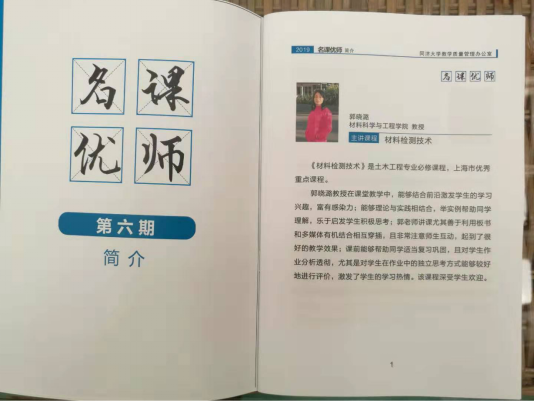 名课
优师
第六期
简介
2019 名课优师 简介
同济大学教学质量管理办公室
名课优师
郭晓潞
材料科学与工程学院 教授
主讲课程 材料检测技术
《材料检测技术》是土木工程专业必修课程，上海市优秀
重点课程。
郭晓潞教授在课堂教学中，能够结合前沿激发学生的学习
兴趣，富有感染力；能够理论与实践相结合，举实例帮助同学
理解，乐于启发学生积极思考；郭老师讲课尤其善于利用板书
和多媒体有机结合相互穿插，且非常注意师生互动，起到了很
好的教学效果；课前能够帮助同学适当复习巩固，且对学生作
业分析透彻，尤其是对学生在作业中的独立思考方式能够较好
地进行评价，激发了学生的学习热情。该课程深受学生欢迎。
1